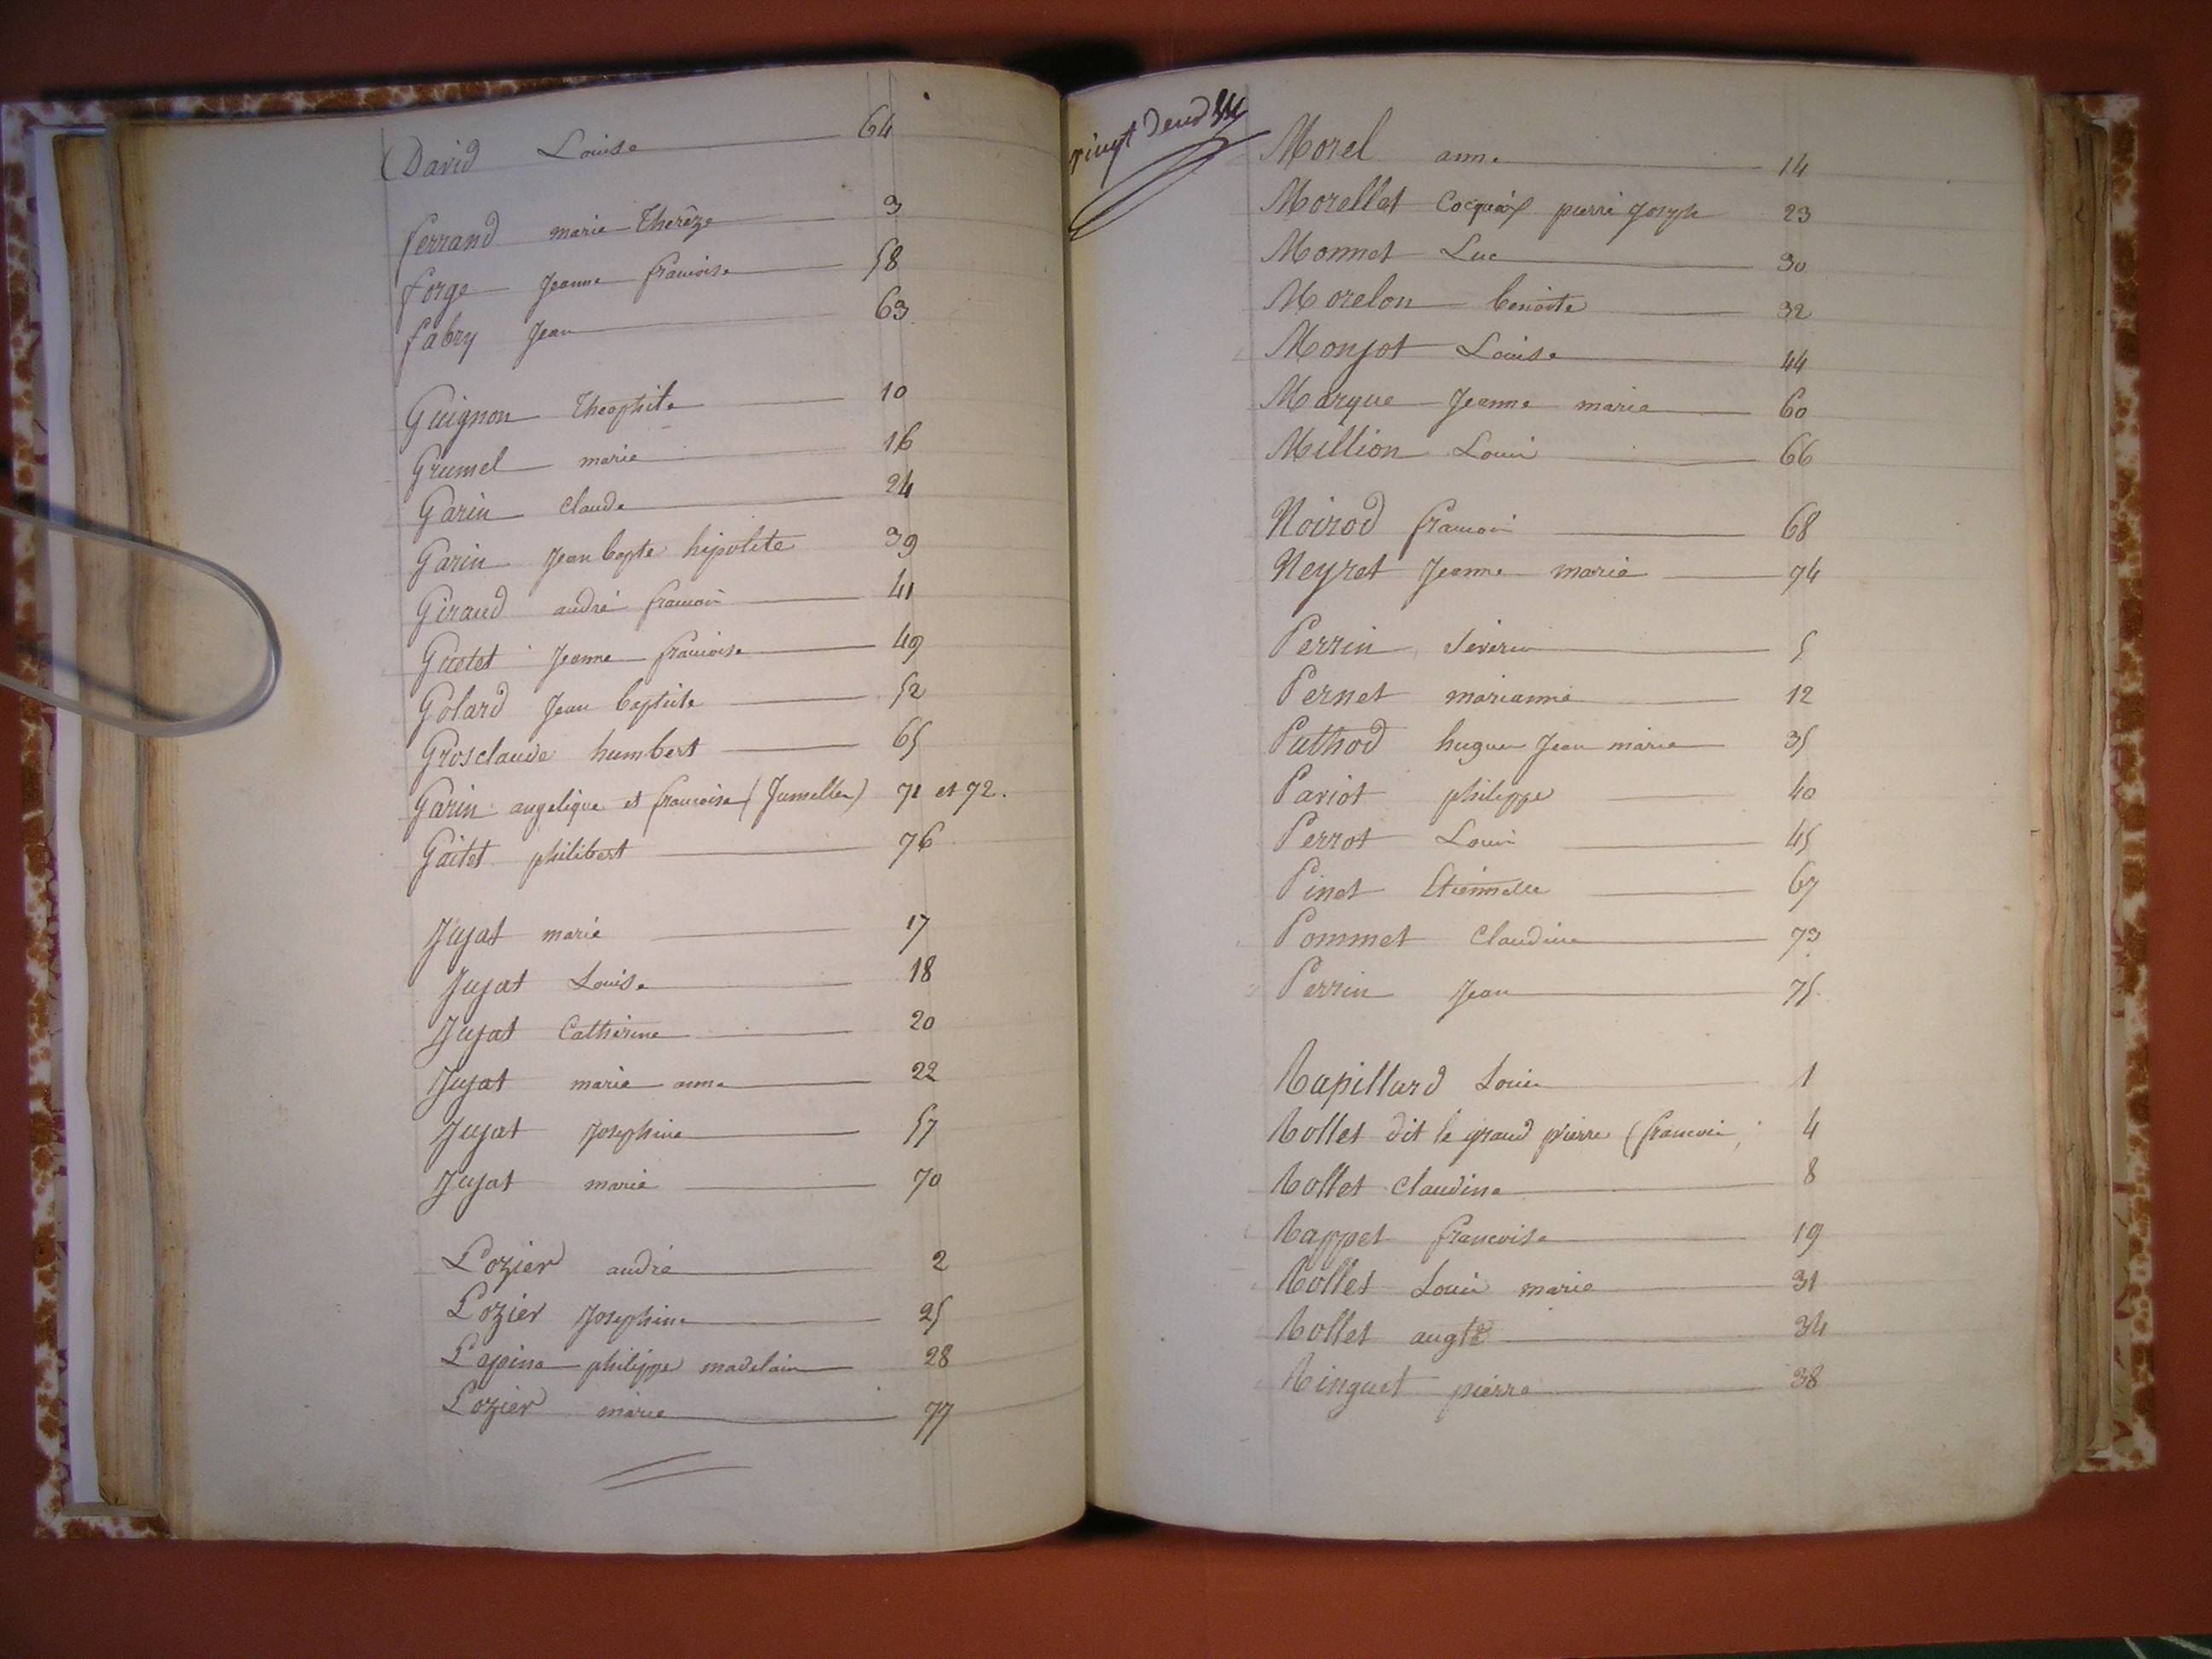 David Louise 64
ferrand marie Thérèze 3
forge Jeanne francoise 58
fabry Jean 63
Guignon Theophile 10
Grumel marie 16
Garin Claude 24
Garin Jean bapte hipolite 39
Giraud andré francois 41
Guetet Jeanne francoise 49
Golard Jean baptiste 52
Grosclaude humbert 65
Garin angelique et francoise (Jumelles) 71 et 72.
Gaitet philibert 76
Jujat marie 17
Jujat Louise 18
Jujat Catherine 20
Jujat marie anne 22
Jujat Josephine 57
Jujat marie 70
Lozier andré 2
Lozier Josephine 25
Lepine philippe madelain 28
Lozier marie 77
vingt deux
Morel anne 14
Morellet pierre Joseph 23
Monnet Luc 30
Morelon benoite 32
Monjot Louise 44
Marque Jeanne marie 60
Million Louis 66
Noirod francois 68
Neyret Jeanne marie 74
Perrin Séverin 5
Pernet marianne 12
Puthod hugues Jean marie 35
Pariot philippe 40
Perrot Louis 45
Pinet Etiennette 67
Pommet Claudine 73
Perrin Jean 75
Rapillard Louis 1
Rollet dit le grand pierre (francois) 4
Rollet Claudine 8
Rappet francoise 19
Rollet Louis marie 31
Rollet augte 34
Ringuet pierre 38